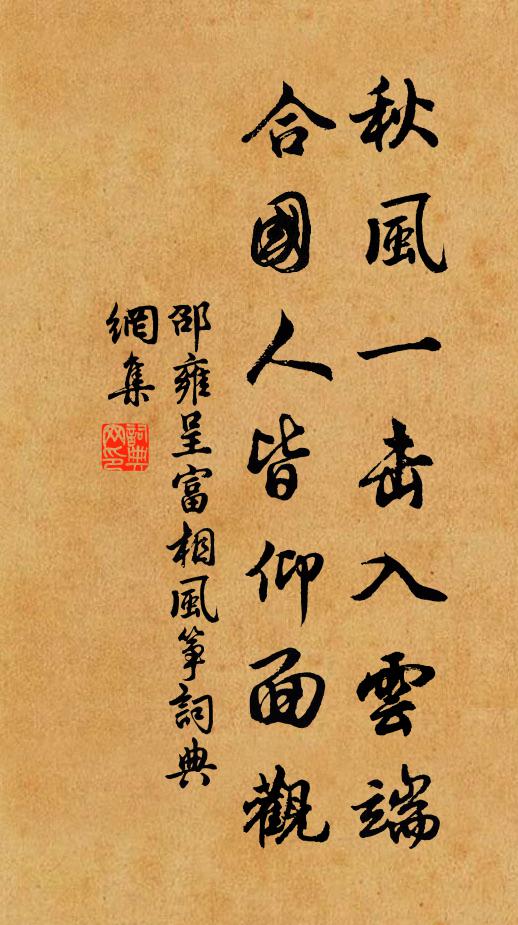 秋風一击入雲端
合國人皆仰面觀
邵雍呈富相風筝詞典
網集
詞典
网印